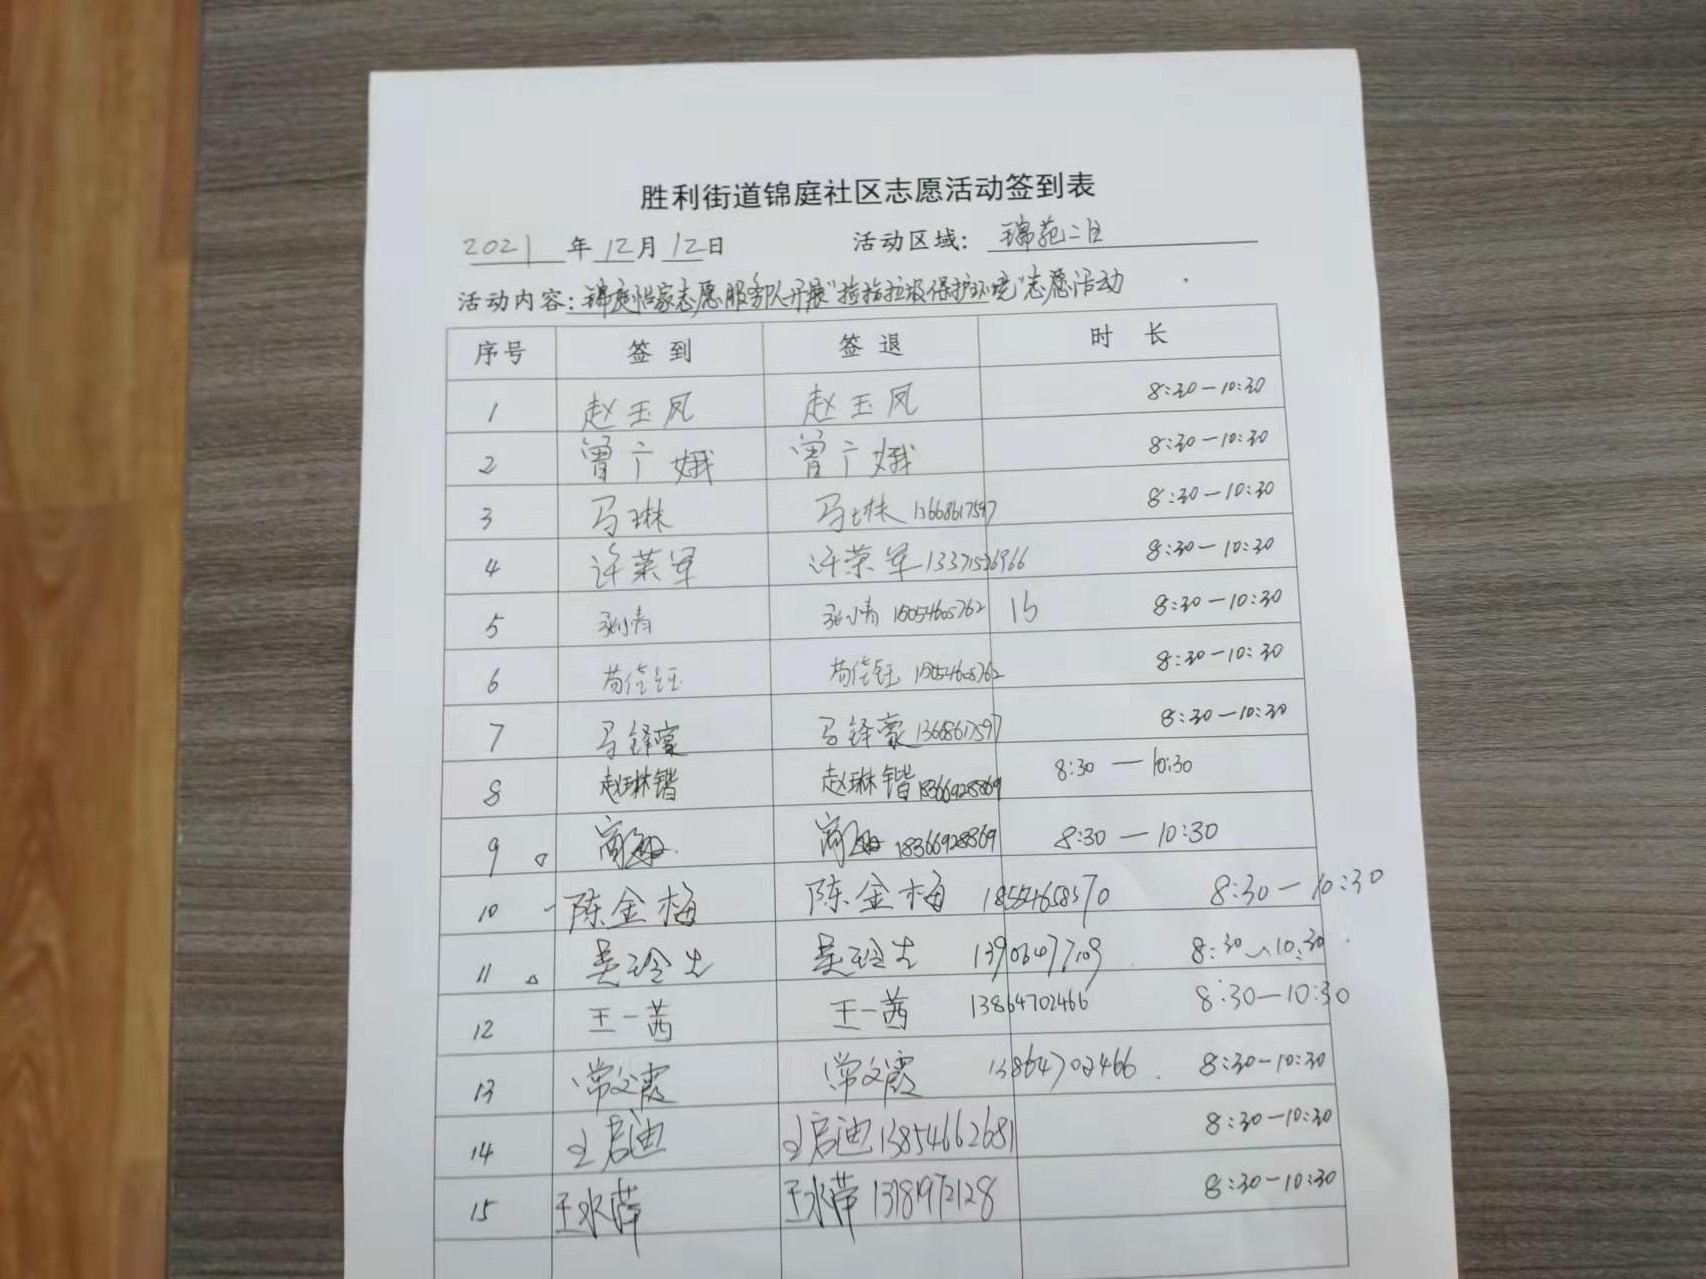 胜利街道锦庭社区志愿活动签到表
2021 年 12 月 12 日 活动区域: 锦苑二区
活动内容: 锦庭 家志愿服务队开展"捡拾垃圾保护环境"志愿活动
序号 签到 签退 时 长
1 赵玉凤 赵玉凤 8:30-10:30
2 曾广娥 曾广娥 8:30-10:30
3 马琳 马琳 13668617597 8:30-10:30
4 许荣军 许荣军 13371526966 8:30-10:30
5 8:30-10:30
6 苟佳钰 苟佳钰 8:30-10:30
7 马铎豪 马铎豪 13668617597 8:30-10:30
8 赵琳锴 赵琳锴 18366928869 8:30 — 10:30
9 商 商 18366928869 8:30 — 10:30
10 陈金梅 陈金梅 8:30-10:30
11 吴玲 吴玲 8:30~10:30
12 王一茜 王一茜 13864702466 8:30-10:30
13 常文霞 常文霞 13864702466 8:30-10:30
14 王启迪 王启迪 13854662681 8:30-10:30
15 王水萍 王水萍 8:30-10:30